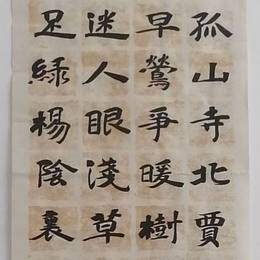 孤山寺北賈
早鶯爭暖樹
迷人眼淺草
足綠楊陰裏